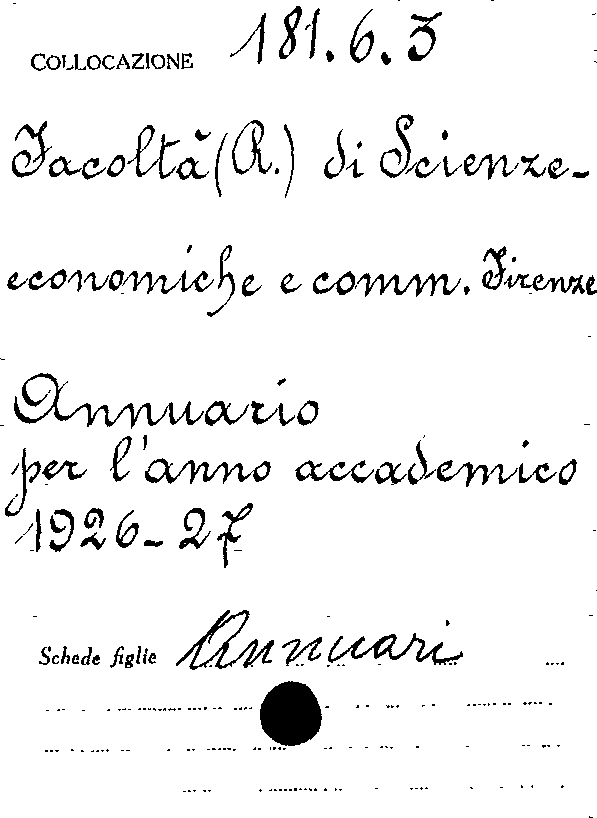 COLLOCAZIONE 181.6.3
Facoltà (R.) di Scienze-
economiche e comm. Firenze
Annuario
per l'anno accademico
1926-27
Schede figlie Annuari